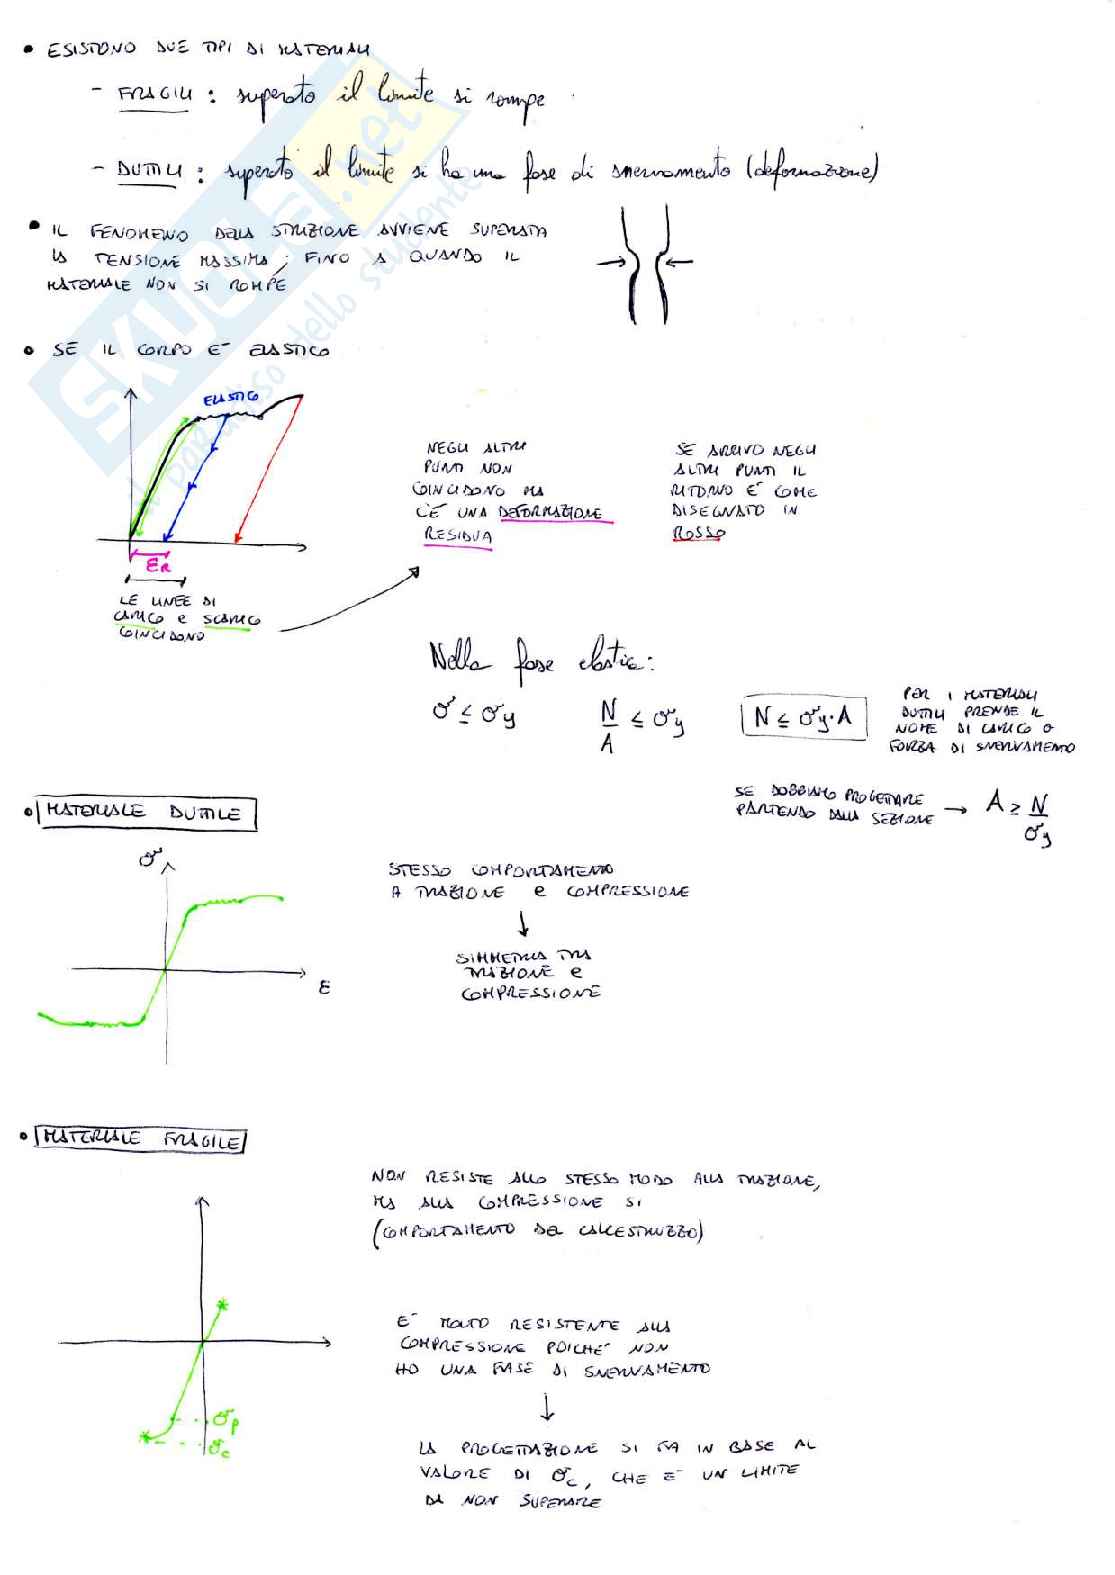 • ESISTONO DUE TIPI DI MATERIALI
- FRAGILI : superato il limite si rompe
- DUTTILI : superato il limite si ha una fase di snervamento (deformazione)
• IL FENOMENO DELLA STRIZIONE AVVIENE SUPERATA
LA TENSIONE MASSIMA, FINO A QUANDO IL
MATERIALE NON SI ROMPE
• SE IL CORPO E' ELASTICO
ELASTICO
εR
LE LINEE DI
CARICO e SCARICO
COINCIDONO
NEGLI ALTRI
PUNTI NON
COINCIDONO MA
C'E' UNA DEFORMAZIONE
RESIDUA
SE ARRIVO NEGLI
ALTRI PUNTI IL
RITORNO E' COME
DISEGNATO IN
ROSSO
Nella fase elastica:
σ ≤ σy
N/A ≤ σy
N ≤ σy·A
PER I MATERIALI
DUTTILI PRENDE IL
NOME DI CARICO O
FORZA DI SNERVAMENTO
SE DOBBIAMO PROGETTARE
PARTENDO DALLA SEZIONE → A ≥ N/σy
• MATERIALE DUTTILE
σ
ε
STESSO COMPORTAMENTO
A TRAZIONE e COMPRESSIONE
↓
SIMMETRIA TRA
TRAZIONE e
COMPRESSIONE
• MATERIALE FRAGILE
σp
σc
NON RESISTE ALLO STESSO MODO ALLA TRAZIONE,
MA ALLA COMPRESSIONE SI
(COMPORTAMENTO DEL CALCESTRUZZO)
E' MOLTO RESISTENTE ALLA
COMPRESSIONE POICHE' NON
HO UNA FASE DI SNERVAMENTO
↓
LA PROGETTAZIONE SI FA IN BASE AL
VALORE DI σc, CHE E' UN LIMITE
DA NON SUPERARE
SKUOLA.net
il paradiso dello studente